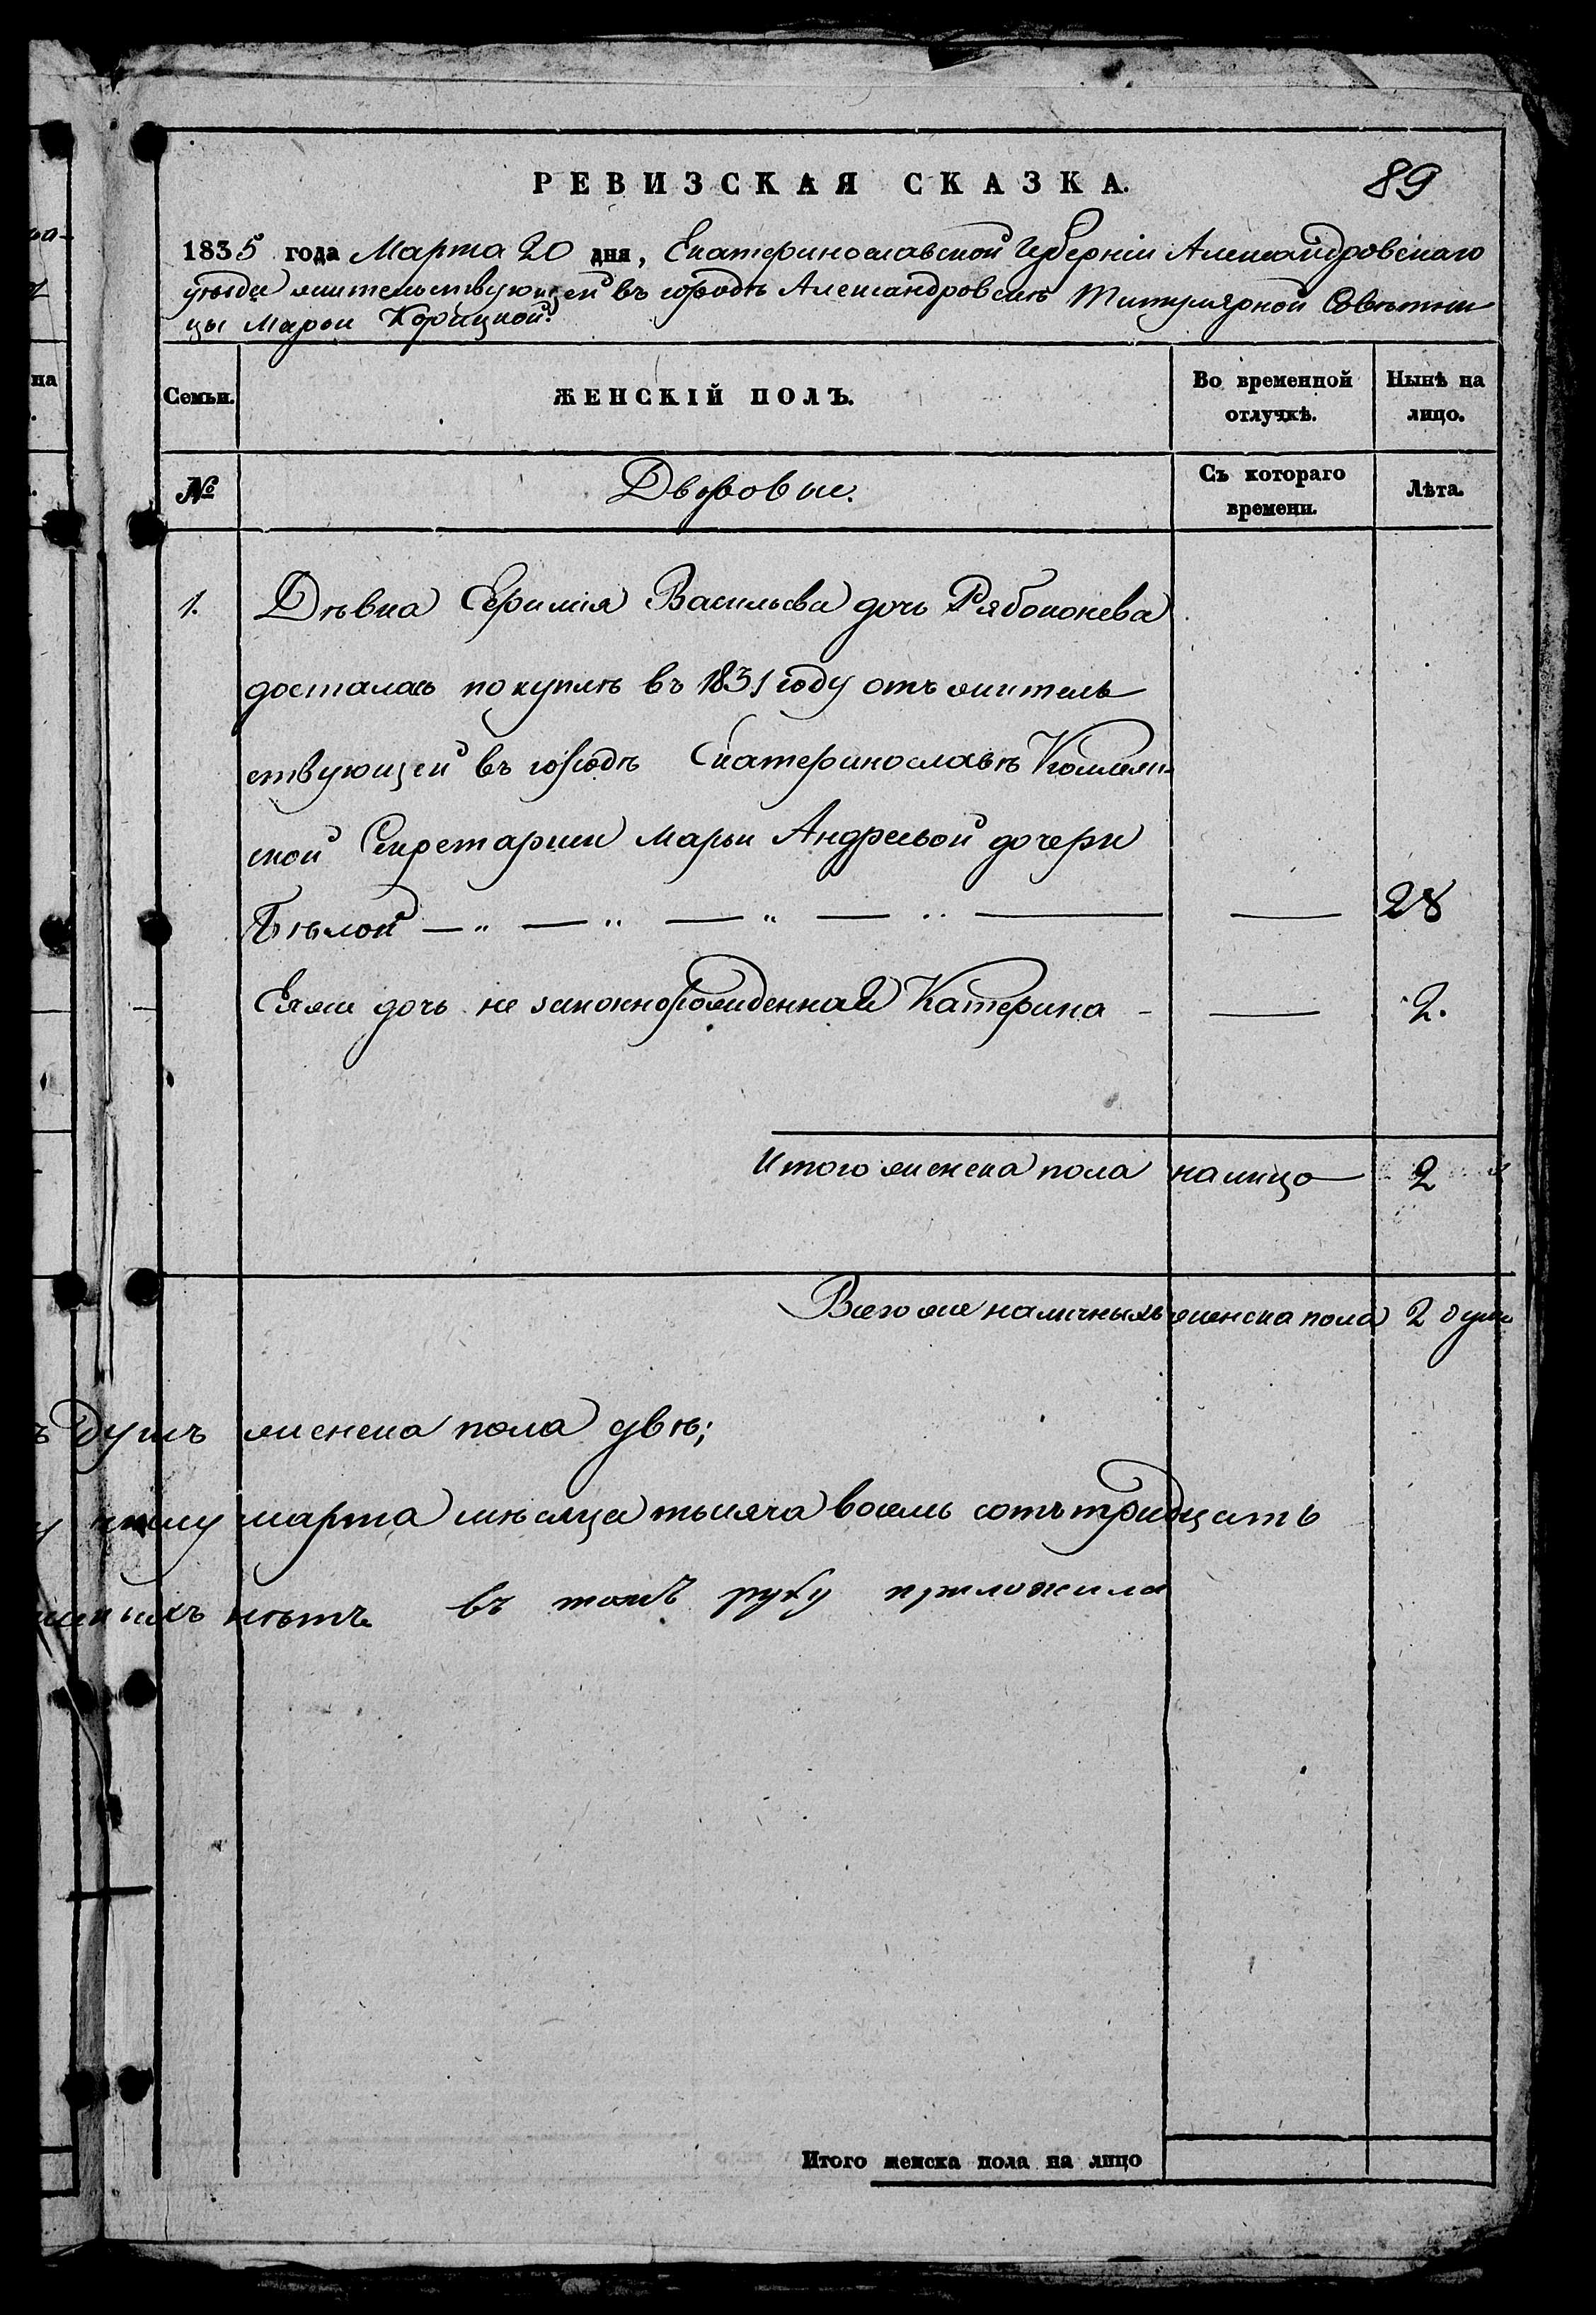 РЕВИЗСКАЯ СКАЗКА.
89
1835 года Марта 20 дня, Екатеринославской Губерніи Александровскаго
уѣзда жительствующей въ городѣ Александровскѣ Титулярной Совѣтни
цы Марьи Корицкой.
Семьи.
ЖЕНСКІЙ ПОЛЪ.
Во временной отлучкѣ.
Нынѣ на лицо.
№
Дворовые.
Съ котораго времени.
Лѣта.
1. Дѣвка Васильева дочь Рябоконева
досталась по куплѣ въ 1831 году отъ житель
ствующей въ городѣ Екатеринославѣ Коллеж
ской Секретарши Марьи Андреевой дочери
Бѣлой — „ — „ — „ — „ — — 28
Еяже дочь не законнорожденная Катерина - — 2.
Итого женска пола налицо 2
Всего же наличныхъ женска пола 2 души
ъ душъ женска пола двѣ;
марта мѣсяца тысяча восемь сотъ тридцать
нѣтъ въ томъ руку приложила
Итого женска пола на лицо